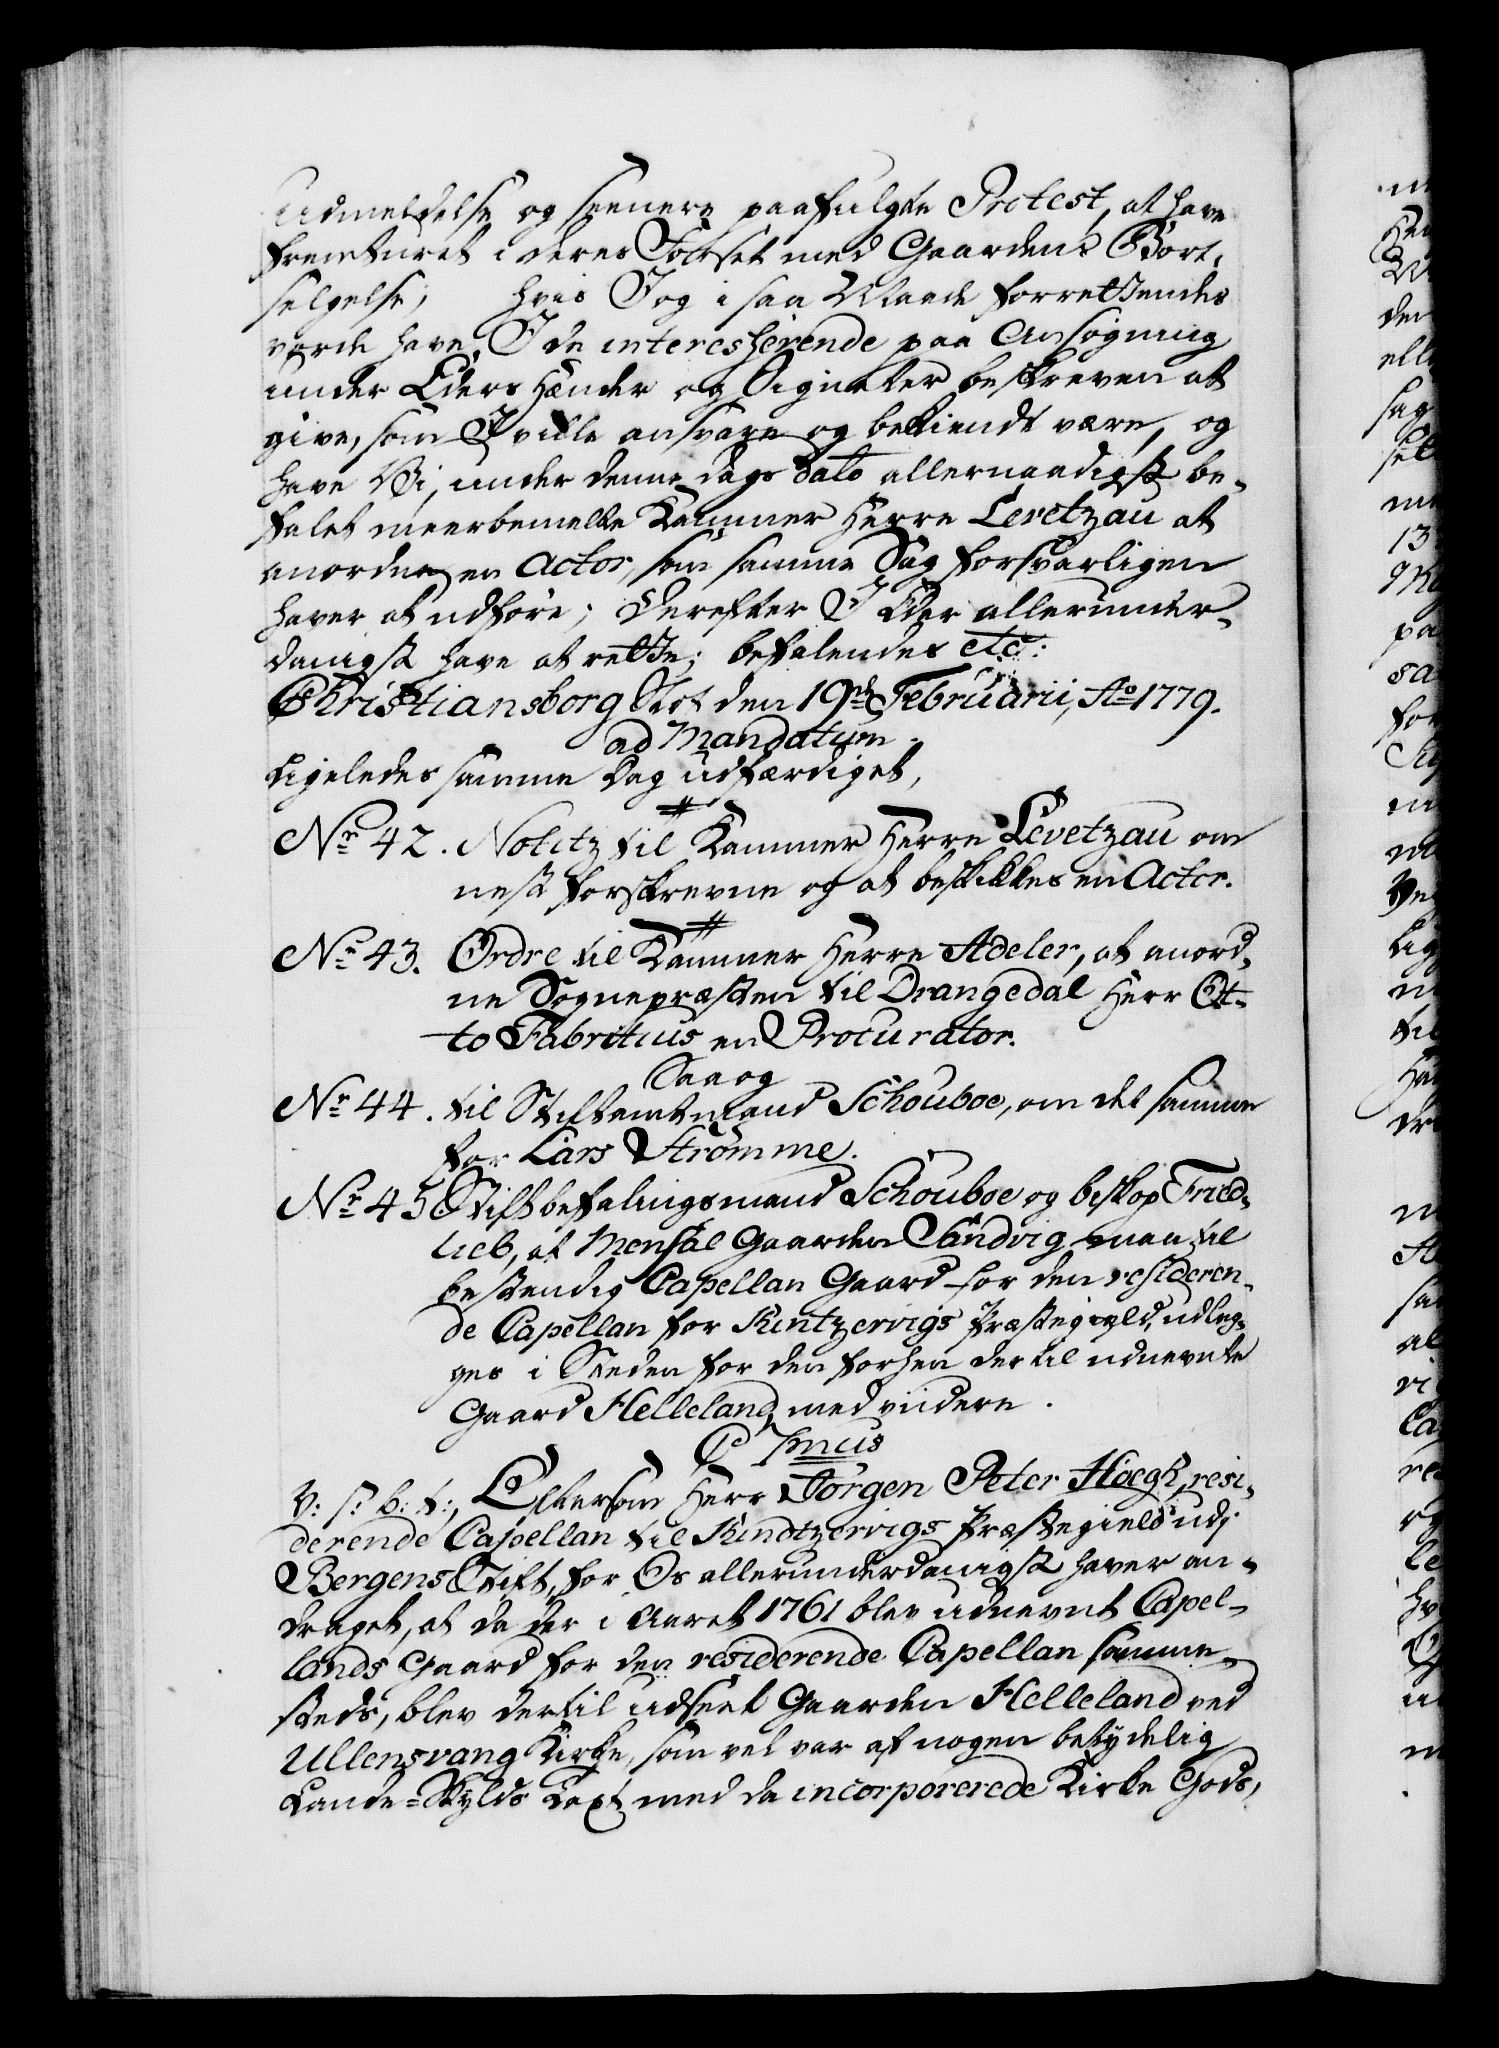 Udmeldelse og seenere paafulgte Protest, at have
fremturet i deres Forset med Gaardens Bort-
selgelse; hvis I og i saa Maade forrettendes
vorde have I de interesherende paa Ansøgning
under Eders Hænder og Signeter beskreven at
give, som I ville ansvare og bekiendt være, og
have Vi, under denne Dags Dato allernaadigst be-
falet meerbemelte Kammer Herre Levetzau at
anordne en Actor, som samme Sag forsvarligen
haver at udføre; Derefter I Eder allerunder-
danigst have at rette; befalendes etc:
Christiansborg Slot den 19de Februarii, Ao 1779.
ad Mandatum.
Ligeledes samme Dag udfærdiget,
Nr 42. Notitz til Kammer Herre Levetzau om
nest forskrevne og at beskikkes en Actor.
Nr 43. Ordre til Kammer Herre Adeler, at anord-
ne Sognepræsten til Drangedal Herr Ot-
to Fabritius en Procurator.
Saa og
Nr 44. til Stiftamtmand Schouboe, om det samme
for Lars Strømme.
Nr 45 Stiftbefalingsmand Schouboe og biskop Fried-
lieb, at Mensal Gaarden Sandvig maa til
bestendig Capellan Gaard for den residerên-
de Capellan for Kintzervigs Præstegield, udleg-
ges i Steden for den forhen dertil udnevnte
Gaard Helleland, med viidere.
C 7mus
V: s: b: t:, Eftersom Herr Jørgen Peter Høegh, resi-
derende Capellan til Kindtzervigs Præstegield udi
Bergens Stift, for Os allerunderdanigst haver an-
draget, at da der i Aaret 1761 blev udnevnt Capel-
lands Gaard for den residerende Capellan samme-
steds, blev dertil udseet Gaarden Helleland ved
Ullensvang Kirke, som vel var af nogen betydelig
Lands-Skylds Taxt med da incorporerede Kirke Gods,